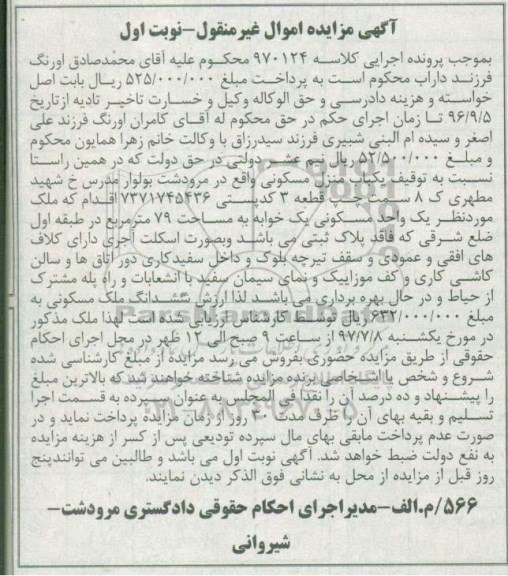 آگهی مزایده اموال غیرمنقول-نوبت اول
بموجب پرونده اجرایی کلاسه ۹۷۰۱۲۴ محکوم علیه آقای محمدصادق اورنگ
فرزند داراب محکوم است به پرداخت مبلغ ۵۲۵/۰۰۰/۰۰۰ ریال بابت اصل
خواسته و هزینه دادرسی و حق الوکاله وکیل و خسارت تاخیر تادیه ازتاریخ
۹۶/۹/۵ تا زمان اجرای حکم در حق محکوم له آقای کامران اورنگ فرزند علی
اصغر و سیده ام البنی شبیری فرزند سیدرزاق با وکالت خانم زهرا همایون محکوم
و مبلغ ۵۲/۵۰۰/۰۰۰ ریال نیم عشر دولتی در حق دولت که در همین راستا
نسبت به توقیف یکباب منزل مسکونی واقع در مرودشت بولوار مدرس خ شهید
مطهری ک ۸ سمت چپ قطعه ۳ کدپستی ۷۳۷۱۷۴۵۴۳۶ اقدام که ملک
موردنظر یک واحد مسکونی یک خوابه به مساحت ۷۹ مترمربع در طبقه اول
ضلع شرقی که فاقد پلاک ثبتی می باشد وبصورت اسکلت آجری دارای کلاف
های افقی و عمودی و سقف تیرچه بلوک و داخل سفیدکاری دور اتاق ها و سالن
کاشی کاری و کف موزاییک و نمای سیمان سفید با انشعابات و راه پله مشترک
از حیاط و در حال بهره برداری می باشد لذا ارزش ششدانگ ملک مسکونی به
مبلغ ۶۳۲/۰۰۰/۰۰۰ریال توسط کارشناس ارزیابی شده است لهذا ملک مذکور
در مورخ یکشنبه ۹۷/۷/۸ از ساعت ۹ صبح الی ۱۲ ظهر در محل اجرای احکام
حقوقی از طریق مزایده حضوری بفروش می رسد مزایده از مبلغ کارشناسی شده
شروع و شخص یا اشخاصی برنده مزایده شناخته خواهند شد که بالاترین مبلغ
را پیشنهاد و ده درصد آن را نقدا فی المجلس به عنوان سپرده به قسمت اجرا
تسلیم و بقیه بهای آن را ظرف مدت ۳۰ روز از زمان مزایده پرداخت نماید و در
صورت عدم پرداخت مابقی بهای مال سپرده تودیعی پس از کسر از هزینه مزایده
به نفع دولت ضبط خواهد شد. آگهی نوبت اول می باشد و طالبین می توانندپنج
روز قبل از مزایده از محل به نشانی فوق الذکر دیدن نمایند.
۵۶۶/م.الف-مدیراجرای احکام حقوقی دادگستری مرودشت-
شیروانی